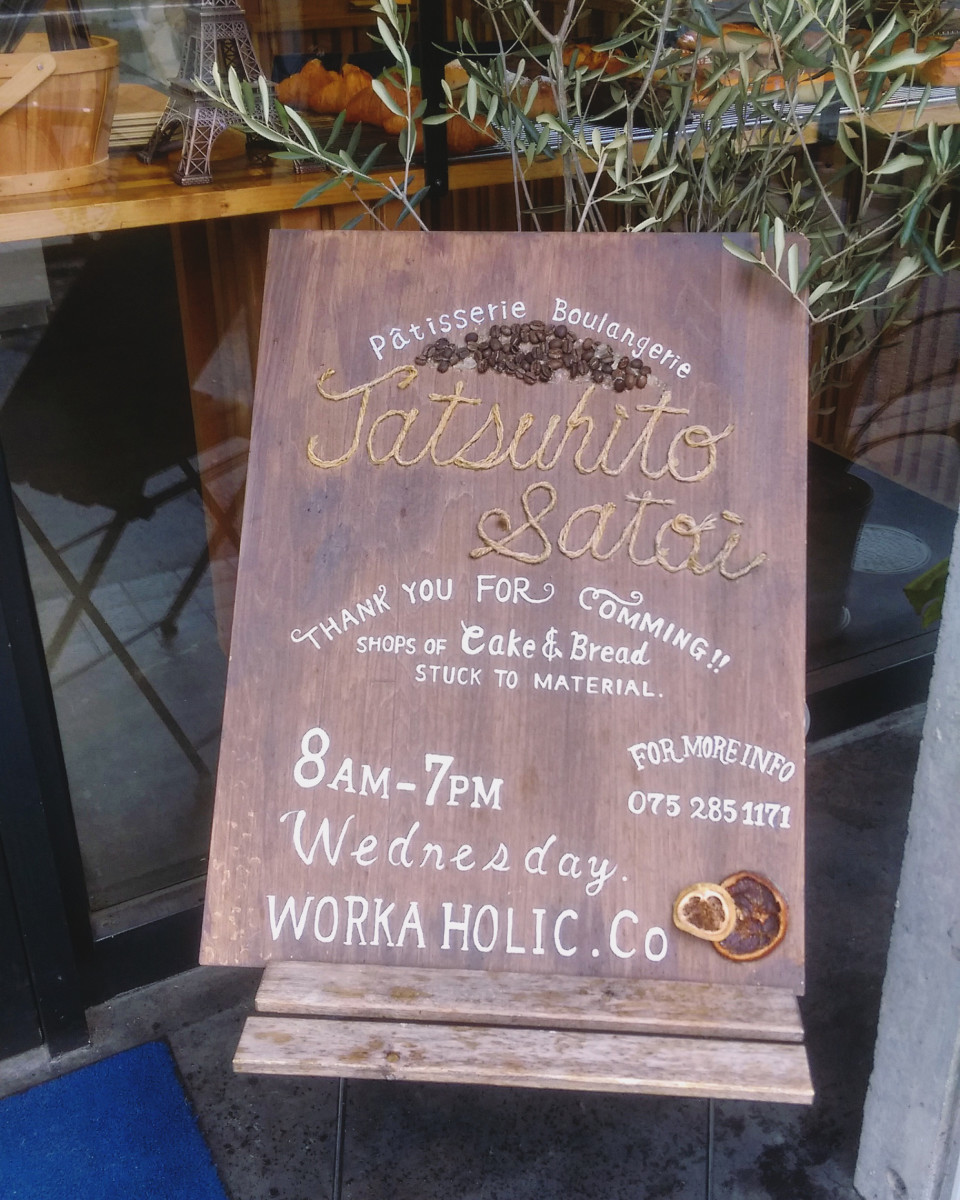 Pâtisserie Boulangerie
Tatsuhito
Satoi
THANK YOU FOR COMMING!!
SHOPS OF Cake & Bread
STUCK TO MATERIAL.
8AM-7PM
FOR MORE INFO
075 285 1171
Wednesday.
WORKA HOLIC.Co